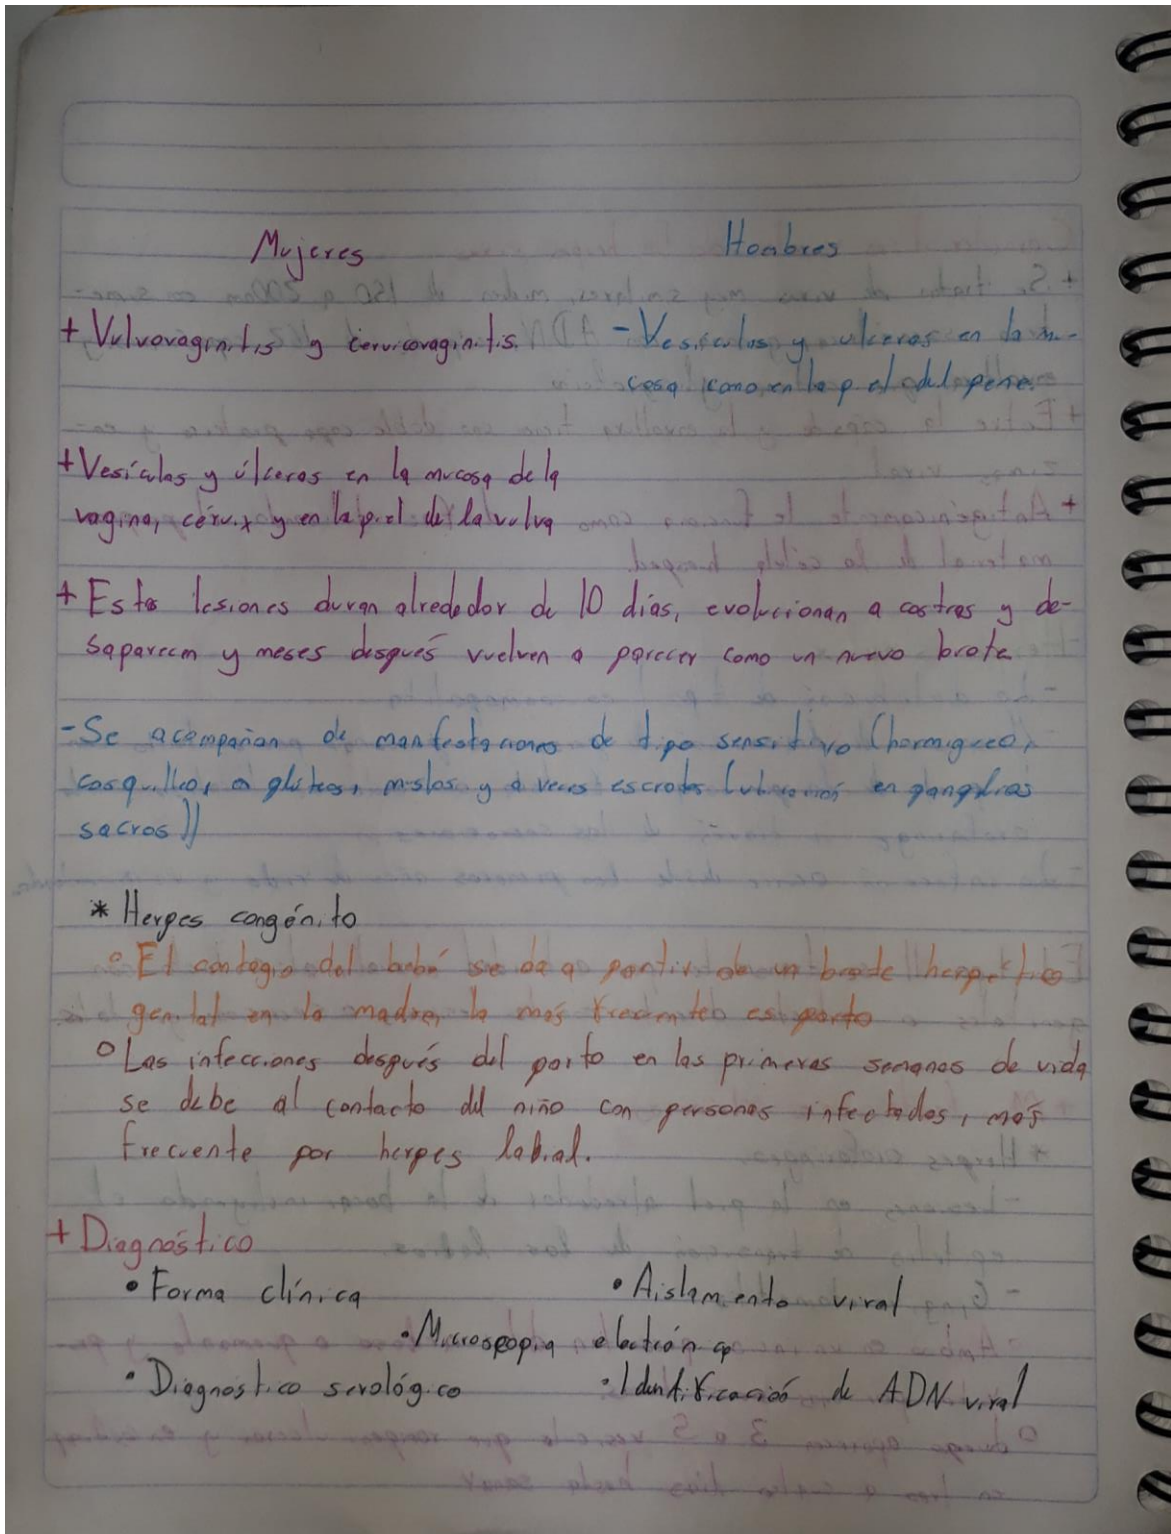 Mujeres
Hombres
+ Vulvovaginitis y cervicovaginitis.
- Vesículas y ulceras en la mu-
cosa como en la piel del pene.
+ Vesículas y úlceras en la mucosa de la
vagina, cérvix y en la piel de la vulva
+ Estas lesiones duran alrededor de 10 días, evolucionan a costras y de-
saparecen y meses después vuelven a parecer como un nuevo brote
- Se acompañan de manifestaciones de tipo sensitivo (hormigueo,
cosquilleo, a glúteos, muslos y a veces escrotos ( en ganglios
sacros))
* Herpes congénito
° El contagio del bebé se da a partir de un brote herpetico
genital en la madre, la más frecuentes es parto
° Las infecciones después del parto en las primeras semanas de vida
se debe al contacto del niño con personas infectadas, más
frecuente por herpes labial.
+ Diagnóstico
• Forma clínica
• Aislamiento viral
• electrónica
• Diagnostico serológico
• Identificación de ADN viral